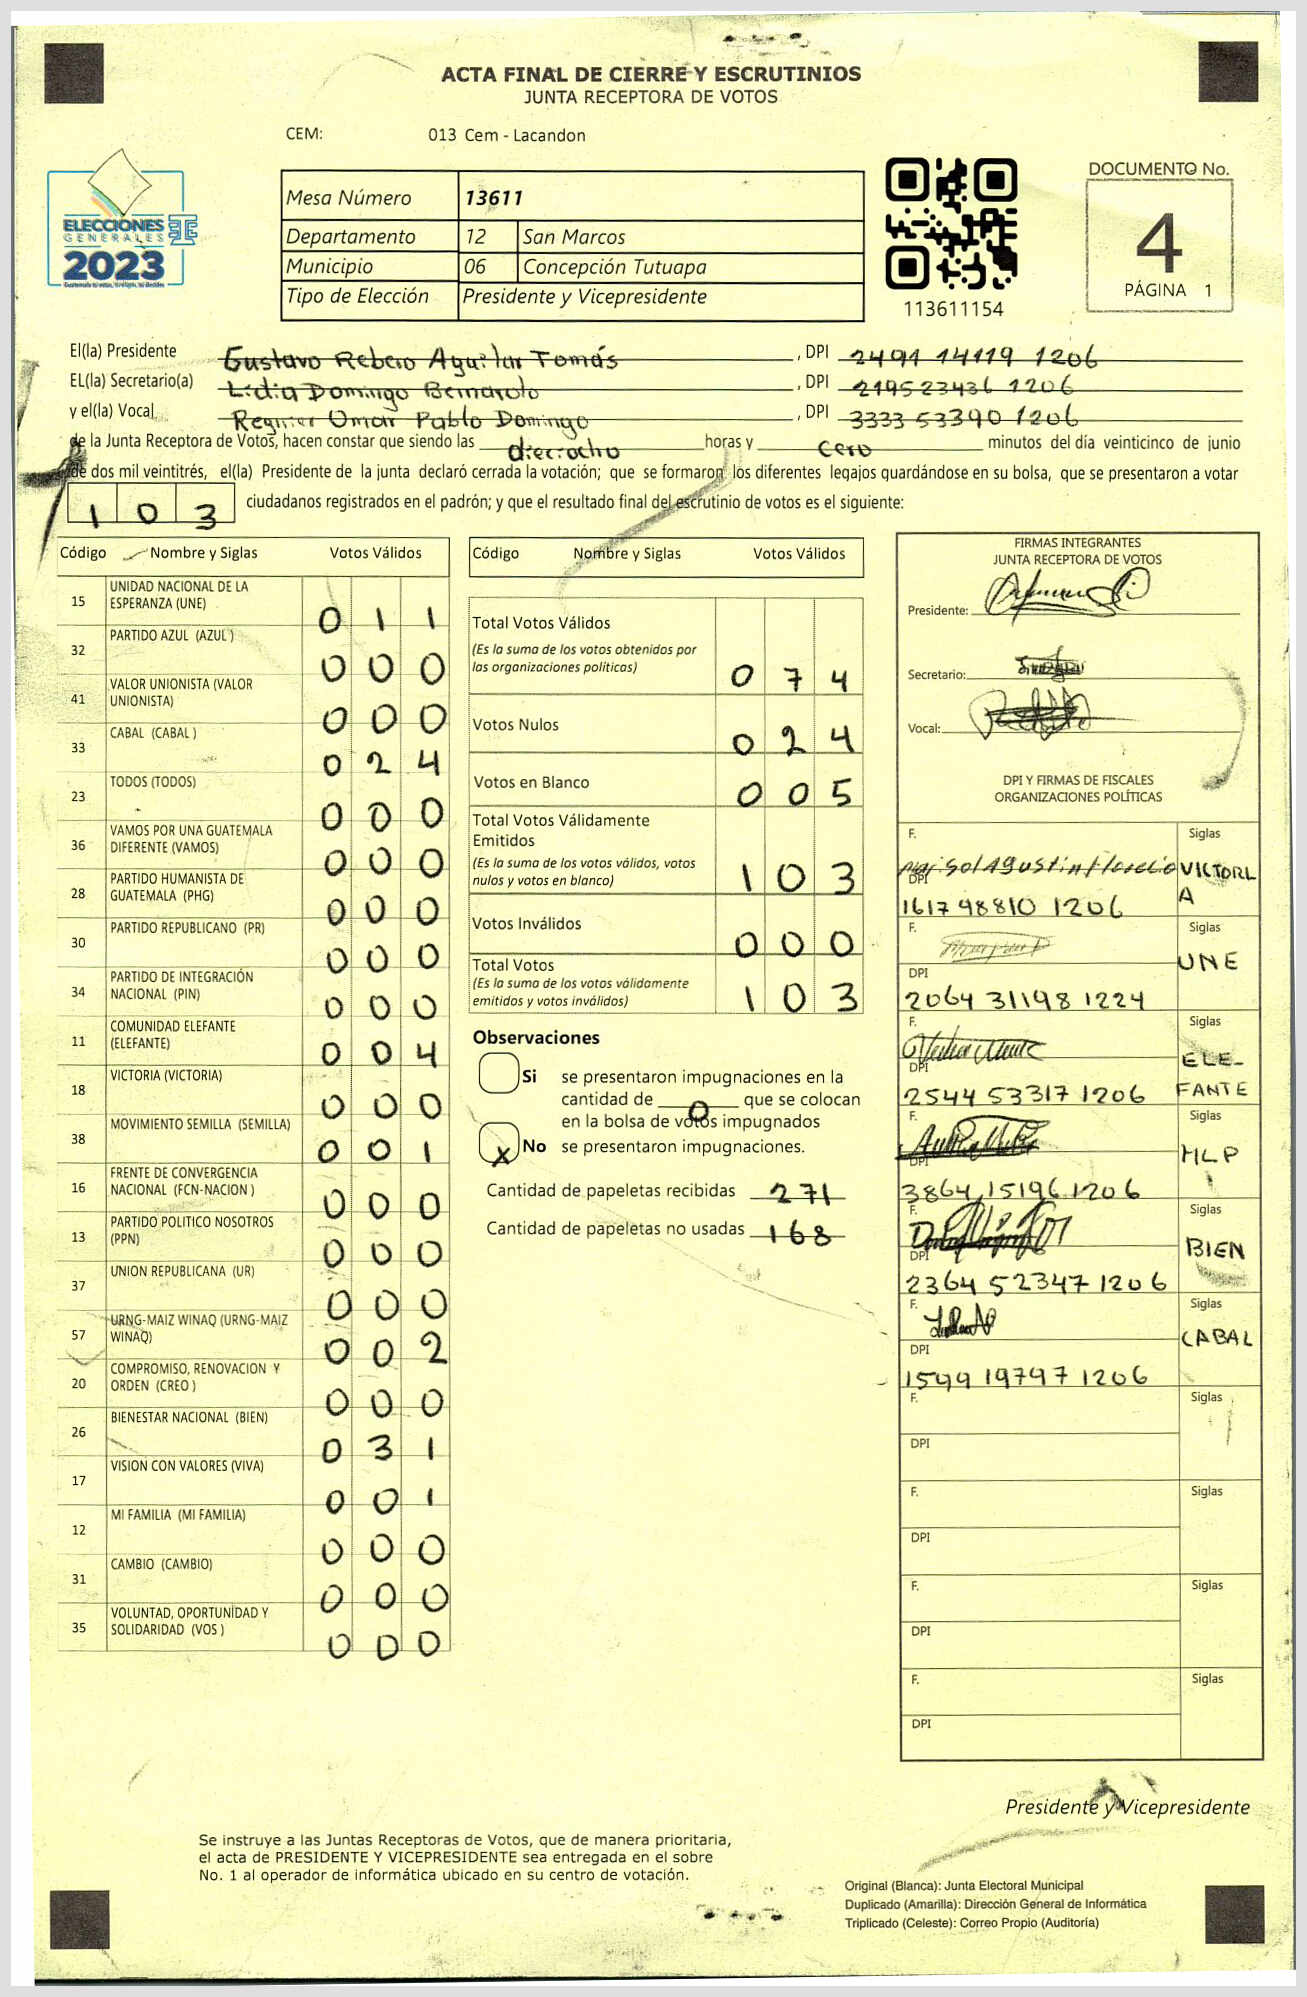 ACTA FINAL DE CIERRE Y ESCRUTINIOS
JUNTA RECEPTORA DE VOTOS
CEM: 013 Cem - Lacandon
ELECCIONES
GENERALES
2023
Mesa Número 13611
Departamento 12 San Marcos
Municipio 06 Concepción Tutuapa
Tipo de Elección Presidente y Vicepresidente
113611154
DOCUMENTO No.
4
PÁGINA 1
El(la) Presidente Gustavo Rebero Aguilar Tomás, DPI 2491 14119 1206
EL(la) Secretario(a) Lidia Domingo Bernardo, DPI 219523436 1206
y el(la) Vocal Regnier Omar Pablo Domingo, DPI 3333 53390 1206
de la Junta Receptora de Votos, hacen constar que siendo las dieciocho horas y cero minutos del día veinticinco de junio
de dos mil veintitrés, el(la) Presidente de la junta declaró cerrada la votación; que se formaron los diferentes legajos guardándose en su bolsa, que se presentaron a votar
103 ciudadanos registrados en el padrón; y que el resultado final del escrutinio de votos es el siguiente:
Código Nombre y Siglas Votos Válidos
15 UNIDAD NACIONAL DE LA ESPERANZA (UNE) 0 1 1
32 PARTIDO AZUL (AZUL ) 0 0 0
41 VALOR UNIONISTA (VALOR UNIONISTA) 0 0 0
33 CABAL (CABAL ) 0 2 4
23 TODOS (TODOS) 0 0 0
36 VAMOS POR UNA GUATEMALA DIFERENTE (VAMOS) 0 0 0
28 PARTIDO HUMANISTA DE GUATEMALA (PHG) 0 0 0
30 PARTIDO REPUBLICANO (PR) 0 0 0
34 PARTIDO DE INTEGRACIÓN NACIONAL (PIN) 0 0 0
11 COMUNIDAD ELEFANTE (ELEFANTE) 0 0 4
18 VICTORIA (VICTORIA) 0 0 0
38 MOVIMIENTO SEMILLA (SEMILLA) 0 0 1
16 FRENTE DE CONVERGENCIA NACIONAL (FCN-NACION ) 0 0 0
13 PARTIDO POLITICO NOSOTROS (PPN) 0 0 0
37 UNION REPUBLICANA (UR) 0 0 0
57 URNG-MAIZ WINAQ (URNG-MAIZ WINAQ) 0 0 2
20 COMPROMISO, RENOVACION Y ORDEN (CREO ) 0 0 0
26 BIENESTAR NACIONAL (BIEN) 0 3 1
17 VISION CON VALORES (VIVA) 0 0 1
12 MI FAMILIA (MI FAMILIA) 0 0 0
31 CAMBIO (CAMBIO) 0 0 0
35 VOLUNTAD, OPORTUNIDAD Y SOLIDARIDAD (VOS ) 0 0 0
Código Nombre y Siglas Votos Válidos
Total Votos Válidos 0 7 4
(Es la suma de los votos obtenidos por
las organizaciones políticas)
Votos Nulos 0 2 4
Votos en Blanco 0 0 5
Total Votos Válidamente
Emitidos 1 0 3
(Es la suma de los votos válidos, votos
nulos y votos en blanco)
Votos Inválidos 0 0 0
Total Votos 1 0 3
(Es la suma de los votos válidamente
emitidos y votos inválidos)
Observaciones
Si se presentaron impugnaciones en la
cantidad de 0 que se colocan
en la bolsa de votos impugnados
X No se presentaron impugnaciones.
Cantidad de papeletas recibidas 271
Cantidad de papeletas no usadas 168
FIRMAS INTEGRANTES
JUNTA RECEPTORA DE VOTOS
Presidente:
Secretario:
Vocal:
DPI Y FIRMAS DE FISCALES
ORGANIZACIONES POLÍTICAS
F. Marisol Agustin Florecio Siglas VICTORIA
DPI 1617 98810 1206
F. Siglas UNE
DPI 2064 31198 1224
F. Siglas ELEFANTE
DPI 2544 53317 1206
F. Siglas MLP
DPI 3864 15196 1206
F. Siglas BIEN
DPI 2364 52347 1206
F. Siglas CABAL
DPI 1599 19797 1206
F. Siglas
DPI
F. Siglas
DPI
F. Siglas
DPI
F. Siglas
DPI
Presidente y Vicepresidente
Se instruye a las Juntas Receptoras de Votos, que de manera prioritaria,
el acta de PRESIDENTE Y VICEPRESIDENTE sea entregada en el sobre
No. 1 al operador de informática ubicado en su centro de votación.
Original (Blanca): Junta Electoral Municipal
Duplicado (Amarilla): Dirección General de Informática
Triplicado (Celeste): Correo Propio (Auditoría)